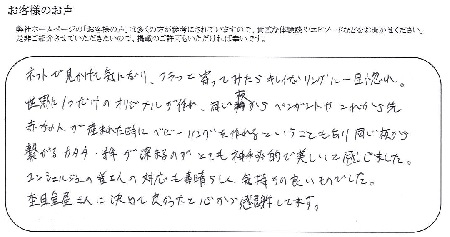 お客様のお声
弊社ホームページの「お客様の声」は多くの方が参考にされていますので、貴重な体験談やエピソードなどをお書かせください。
是非ご紹介させていただきたいので、掲載のご許可もいただければ幸いです。
ネットで見かけて気になり、フラッと寄ってみたらキレイなリングに一目惚れ。
世界に1つだけのオリジナルが作れ、同じ板からペンダントや これから先
赤ちゃんが産まれた時に ベビーリングも作れるということもあり 同じ板から
繋がるカタチ・絆が深まるのが とても神秘的で美しいと感じました。
コンシェルジュの皆さんの対応も素晴らしく、気持ちの良いものでした。
杢目金屋さんに決めて良かったと心から感謝してます。